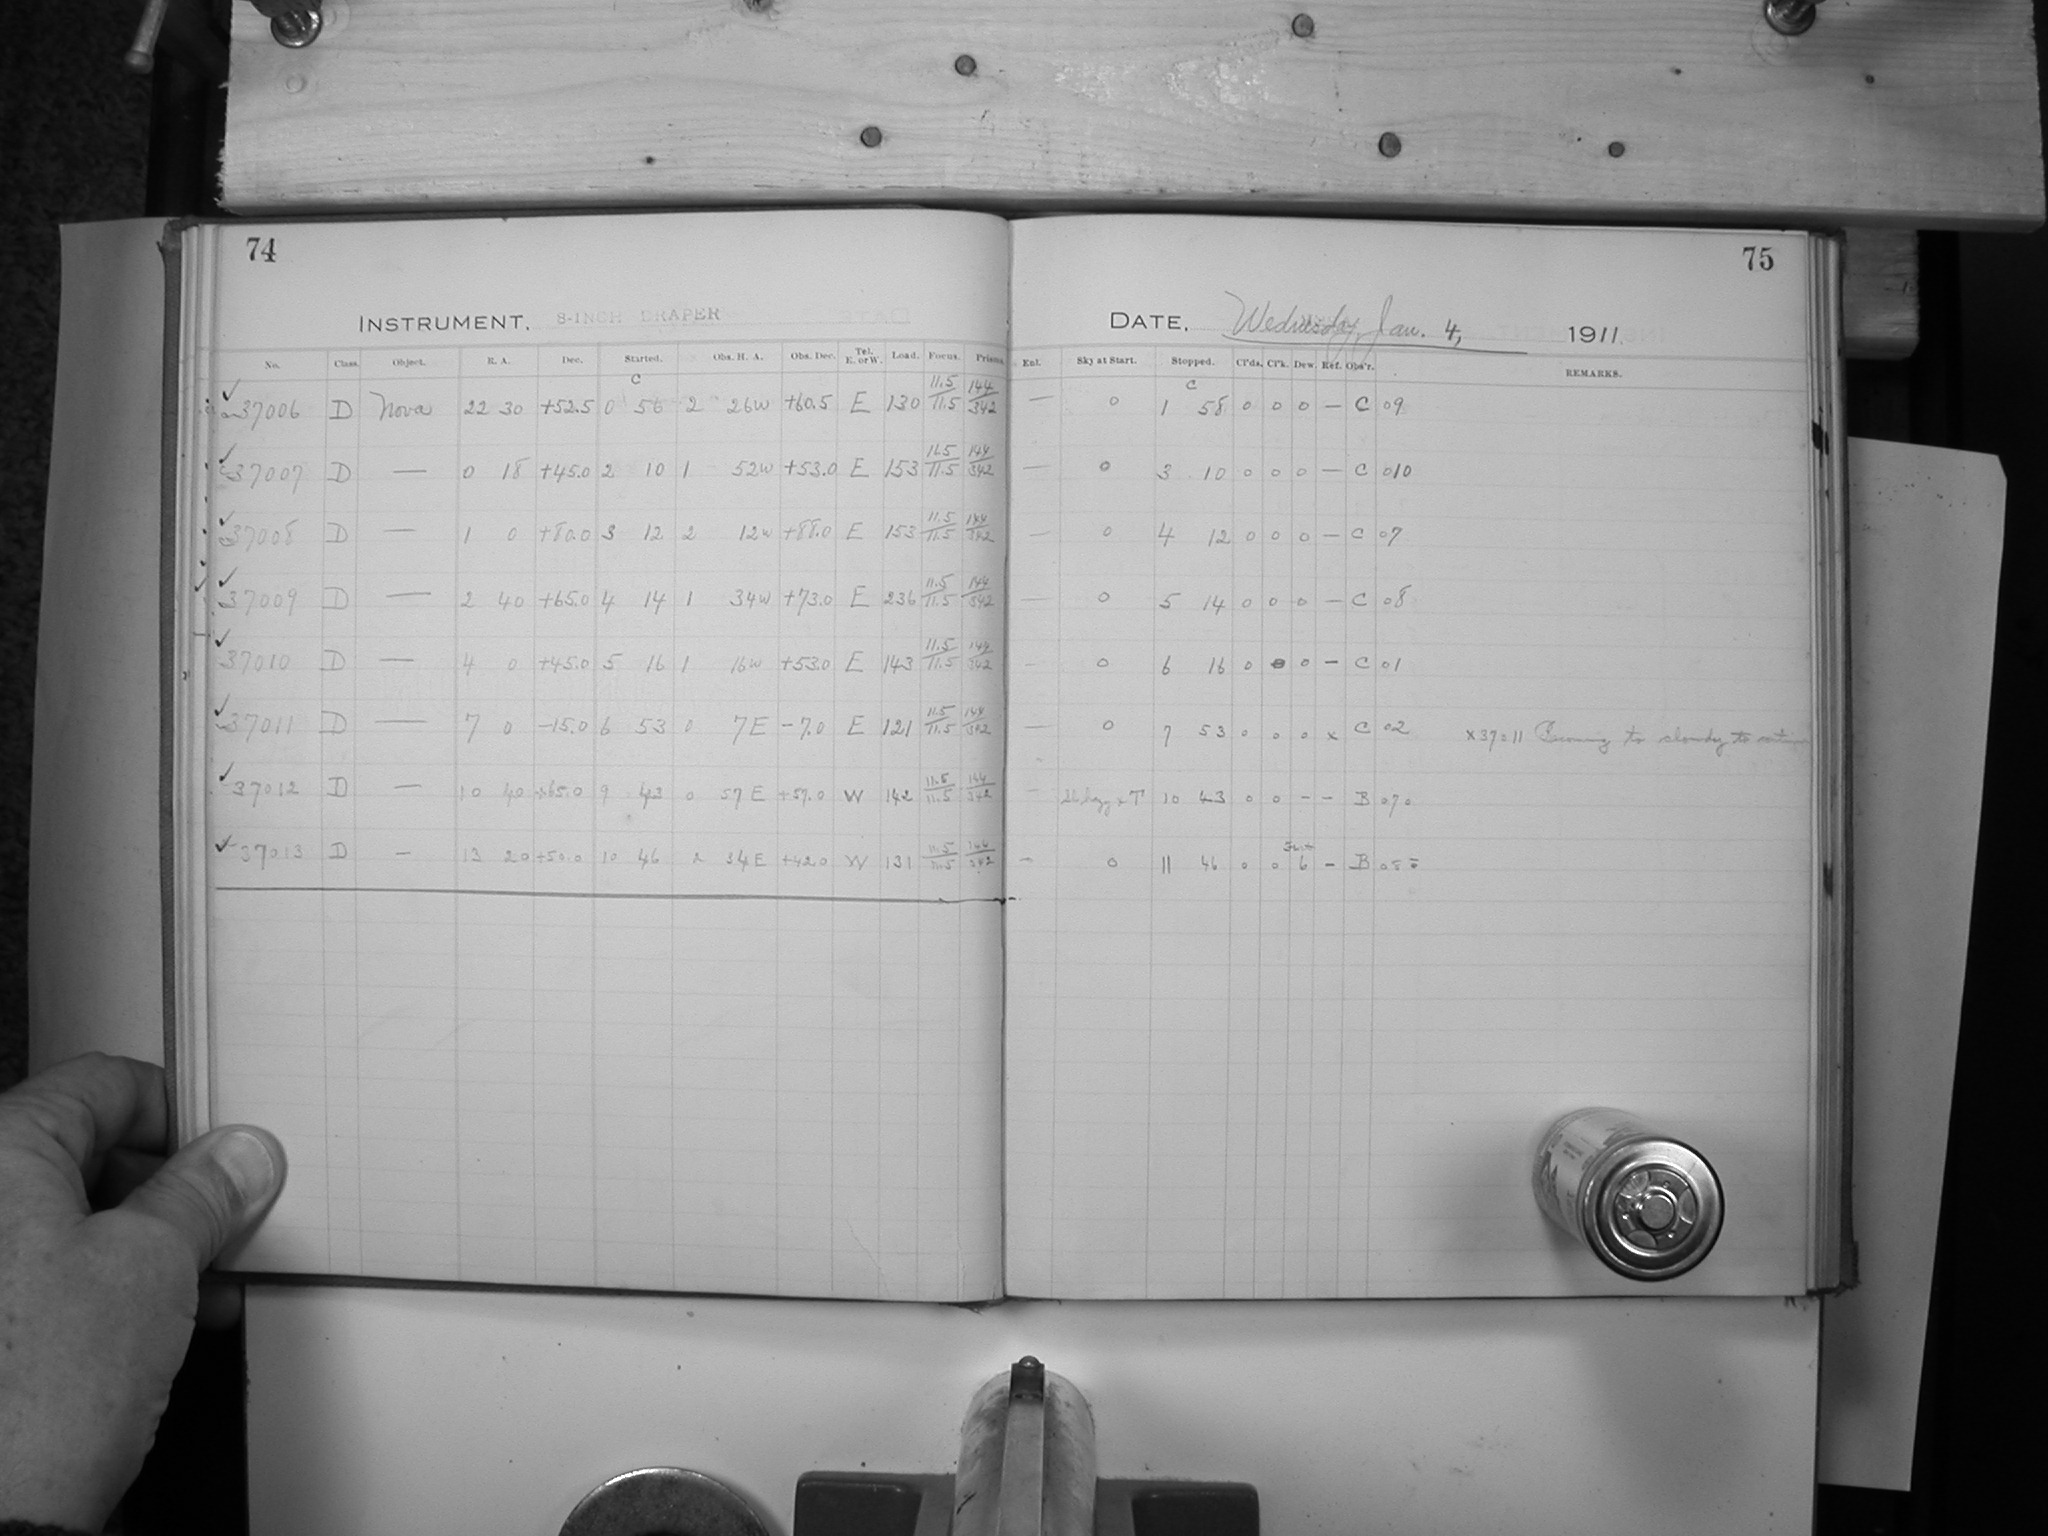 74
75
INSTRUMENT, 8-INCH DRAPER
DATE, Wednesday, Jan. 4, 1911.
No. Class. Object. R. A. Dec. Started. Obs. H. A. Obs. Dec. Tel. E. or W. Load. Focus. Prisms. Enl. Sky at Start. Stopped. Cl'ds. Cl'k. Dew. Ref. Obs'r. REMARKS.
C C
37006 D Nova 22 30 +52.5 0 56 2 26W +60.5 E 130 11.5/11.5 144/342 — 0 1 58 0 0 0 — C 09
37007 D — 0 18 +45.0 2 10 1 52W +53.0 E 153 11.5/11.5 144/342 — 0 3 10 0 0 0 — C 010
37008 D — 1 0 +80.0 3 12 2 12W +88.0 E 153 11.5/11.5 144/342 — 0 4 12 0 0 0 — C 07
37009 D — 2 40 +65.0 4 14 1 34W +73.0 E 236 11.5/11.5 144/342 — 0 5 14 0 0 0 — C 08
37010 D — 4 0 +45.0 5 16 1 16W +53.0 E 143 11.5/11.5 144/342 — 0 6 16 0 0 0 — C 01
37011 D — 7 0 -15.0 6 53 0 7E -7.0 E 121 11.5/11.5 144/342 — 0 7 53 0 0 0 x C 02 x 37011 to cloudy to
37012 D — 10 40 +65.0 9 43 0 57E +57.0 W 142 11.5/11.5 144/342 — hazy x T 10 43 0 0 — — B 070
37013 D — 13 20 +50.0 10 46 2 34E +42.0 W 131 11.5/11.5 144/342 — 0 11 46 0 0 6 — B